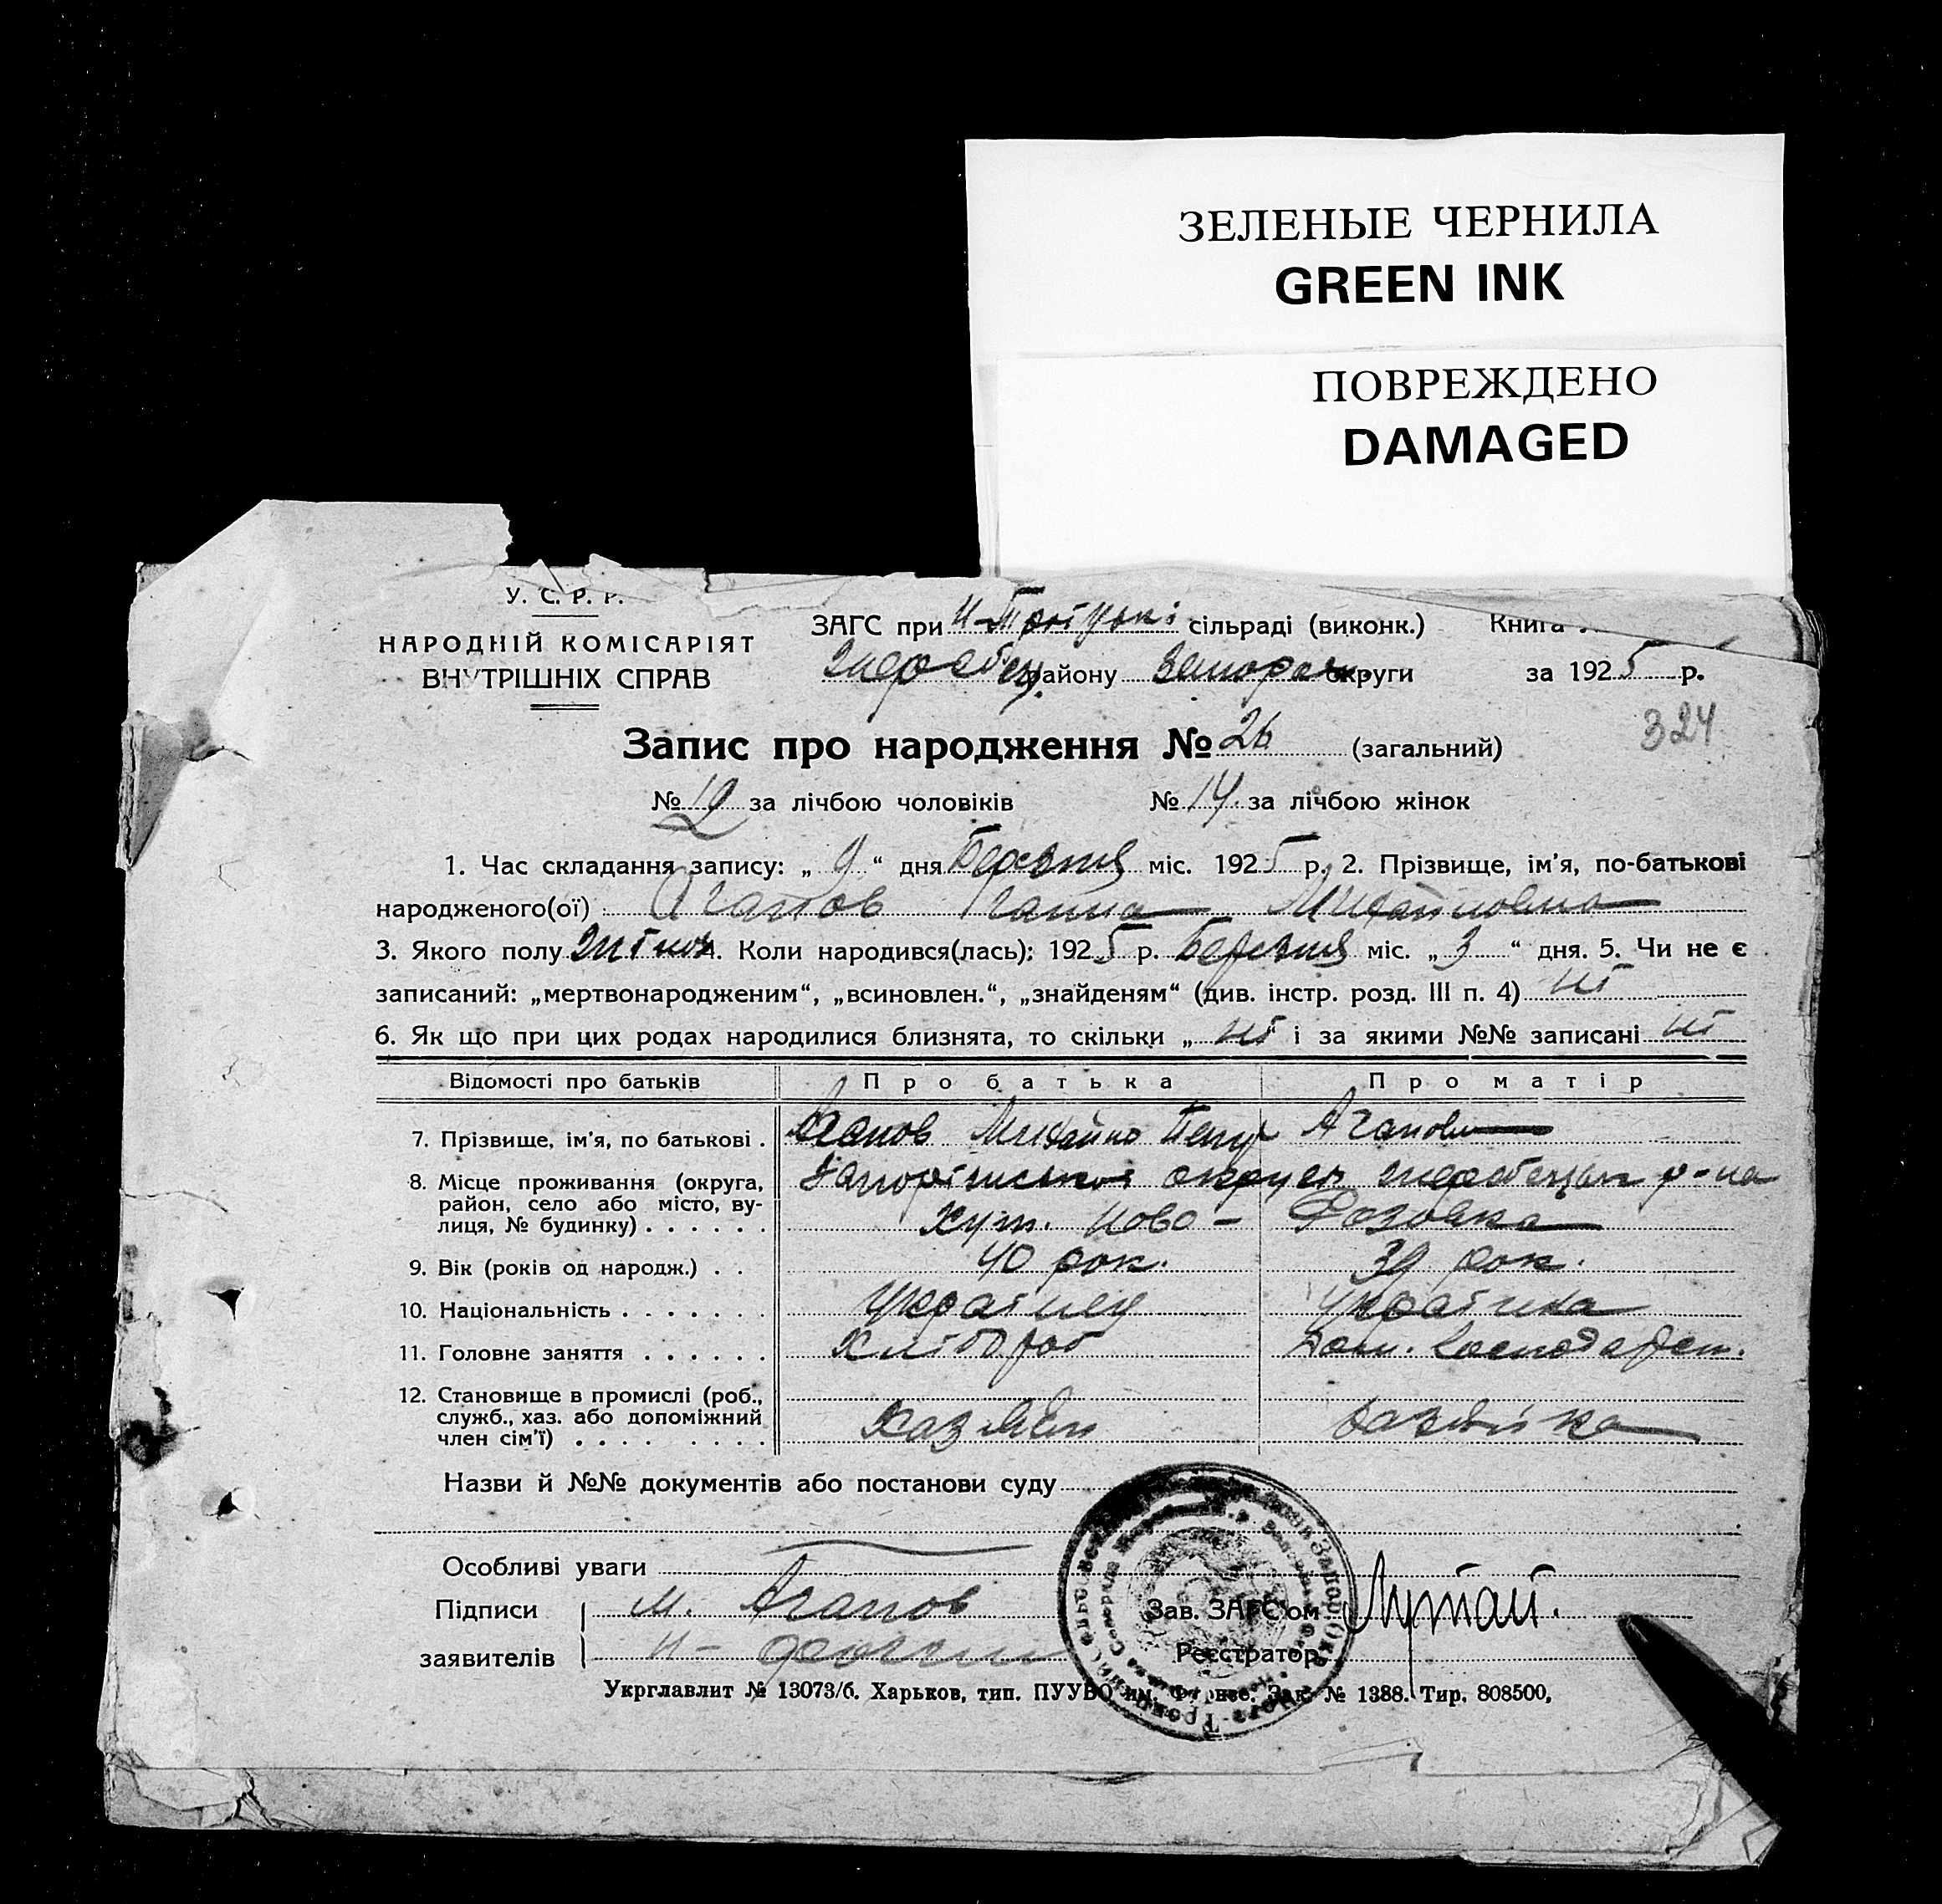 ЗЕЛЕНЫЕ ЧЕРНИЛА
GREEN INK
ПОВРЕЖДЕНО
DAMAGED
У. С. Р. Р.
НАРОДНІЙ КОМІСАРІЯТ
ВНУТРІШНІХ СПРАВ
ЗАГС при Н-Троїцькі сільраді (виконк.) Книга
району Запоріж. округи за 1925 р.
324
Запис про народження № 26 (загальний)
№ 12 за лічбою чоловіків № 14 за лічбою жінок
1. Час складання запису: „ 9 “ дня Березня міс. 1925 р. 2. Прізвище, ім'я, по-батькові
народженого(ої) Агапов Ганна Михайловна
3. Якого полу жіноч. 4. Коли народився(лась); 1925 р. Березня міс. „ 3 “ дня. 5. Чи не є
записаний: „мертвонародженим“, „всиновлен.“, „знайденям“ (див. інстр. розд. III п. 4) ні
6. Як що при цих родах народилися близнята, то скільки „ ні і за якими №№ записані ні
Відомості про батьків Про батька Про матір
7. Прізвище, ім'я, по батькові . Агапов Михайло Петр Агапова
8. Місце проживання (округа, район, село або місто, вулиця, № будинку) . . . . . . Запоріжської округи жеребецьк р-на
Хут. Ново- Розовка
9. Вік (років од народж.) . . 40 рок. 39 рок.
10. Національність . . . . . . . Українец Українка
11. Головне заняття . . . . . . Хлібороб Дом. Господарст.
12. Становище в промислі (роб., служб., хаз. або допоміжний член сім'ї) . . . . . . . . Хазяїн Хазяйка
Назви й №№ документів або постанови суду
Особливі уваги
Підписи М. Агапов Зав. ЗАГС'ом Лутай.
заявителів Реєстратор
Укрглавлит № 13073/б. Харьков, тип. ПУУВО им. Фрунзе. Зак. № 1388. Тир. 808500,